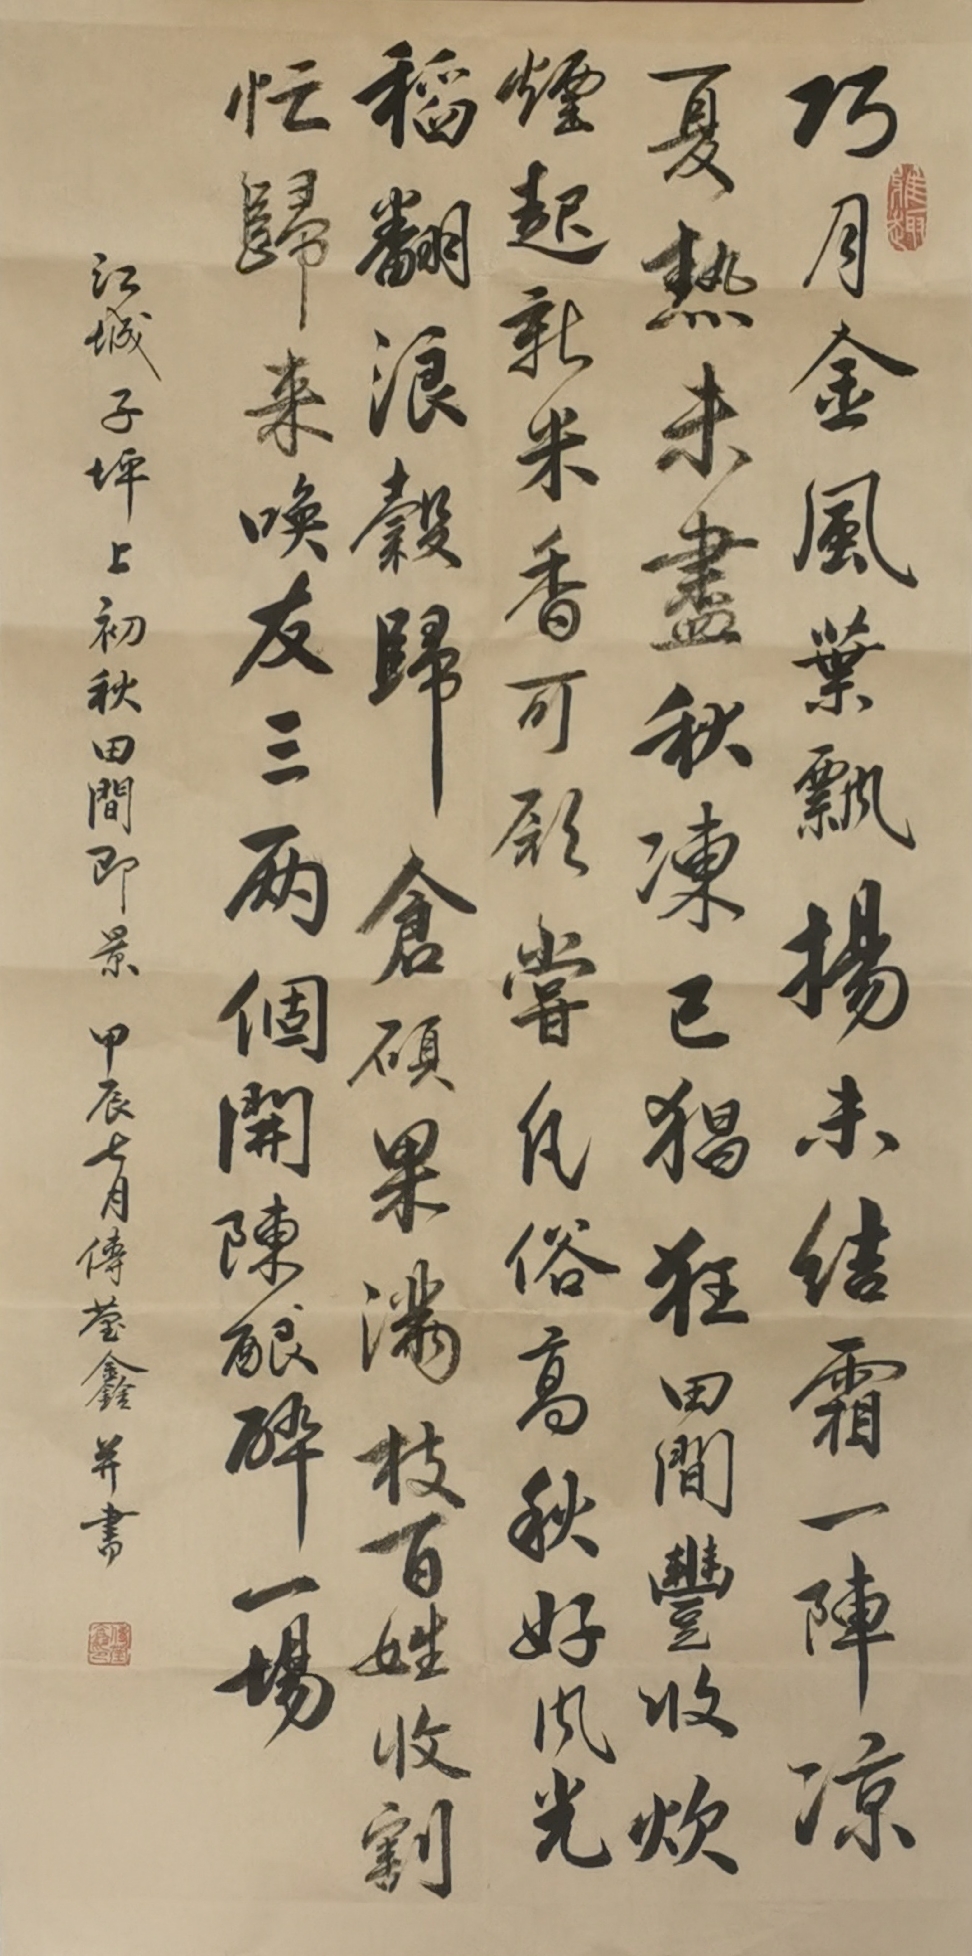 巧月金風葉飄揚未結霜一陣凉
夏熱未盡秋凍已猖狂田間豐收炊
煙起新米香可願嘗凡俗高秋好风光
稻翻浪穀歸倉碩果滿枝百姓收割
忙歸来喚友三两個開陳酿醉一場
江城子坪上初秋田間即景 甲辰七月傅莹鑫并書